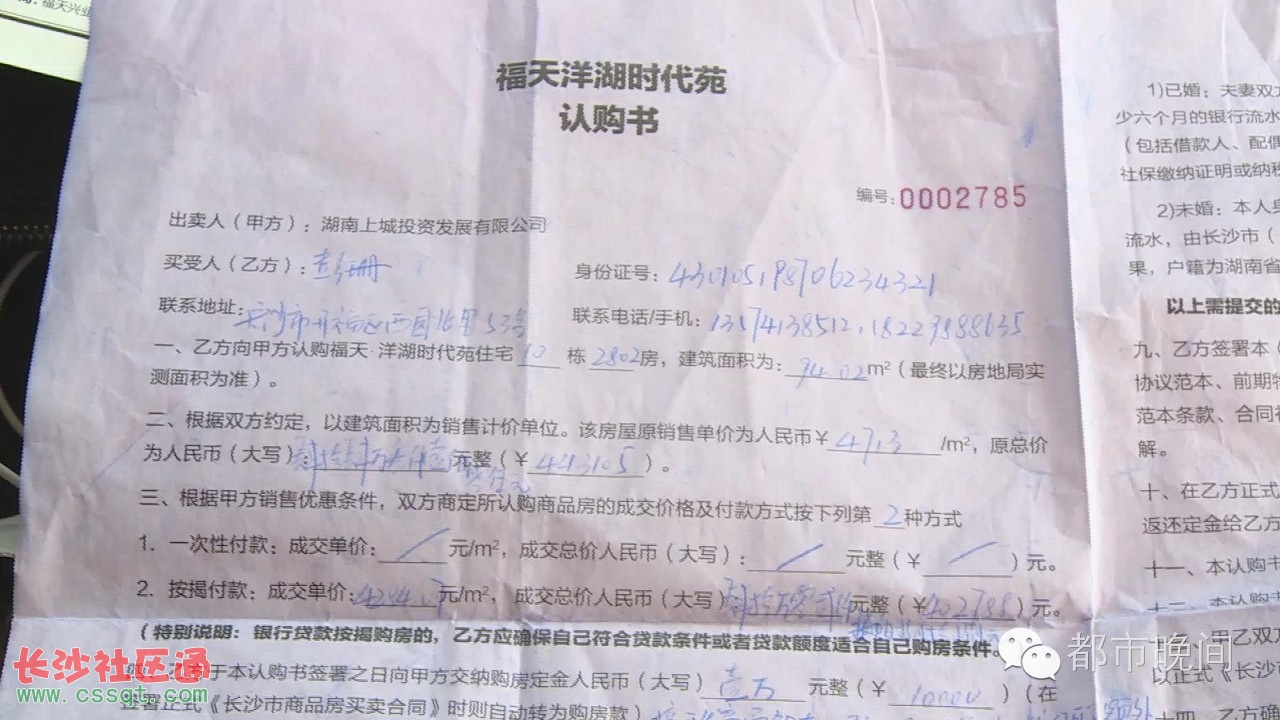 福天兴业
福天洋湖时代苑
认购书
编号:0002785
出卖人（甲方）：湖南上城投资发展有限公司
买受人（乙方）：
身份证号：430105198706234321
联系地址：长沙市开福区
联系电话/手机：13574138512，18223888635
一、乙方向甲方认购福天·洋湖时代苑住宅 10 栋 2802房，建筑面积为：94.02 m²（最终以房地局实
测面积为准）。
二、根据双方约定，以建筑面积为销售计价单位。该房屋原销售单价为人民币￥4713 /m²，原总价
为人民币（大写） 元整（￥443105）。
三、根据甲方销售优惠条件，双方商定所认购商品房的成交价格及付款方式按下列第 2 种方式
1. 一次性付款：成交单价： / 元/m²，成交总价人民币（大写）： / 元整（￥ / ）元。
2. 按揭付款：成交单价: 元/m²，成交总价人民币（大写） 元整（￥402788）元。
（特别说明：银行贷款按揭购房的，乙方应确保自己符合贷款条件或者贷款额度适合自己购房条件。
乙方于本认购书签署之日向甲方交纳购房定金人民币（大写） 壹万 元整（￥ 10000 ）（在
签署正式《长沙市商品房买卖合同》时则自动转为购房款）
1)已婚：夫妻双方
少六个月的银行流水
（包括借款人、配偶
社保缴纳证明或纳税
2)未婚：本人身
流水，由长沙市（
果，户籍为湖南省
以上需提交的
九、乙方签署本（
协议范本、前期物
范本条款、合同
解。
十、在乙方正式
返还定金给乙方
十一、本认购书
十二、本认购
甲乙双方
以正式《长沙
十四、乙方确
都市晚间
长沙社区通
www.cssqt.com